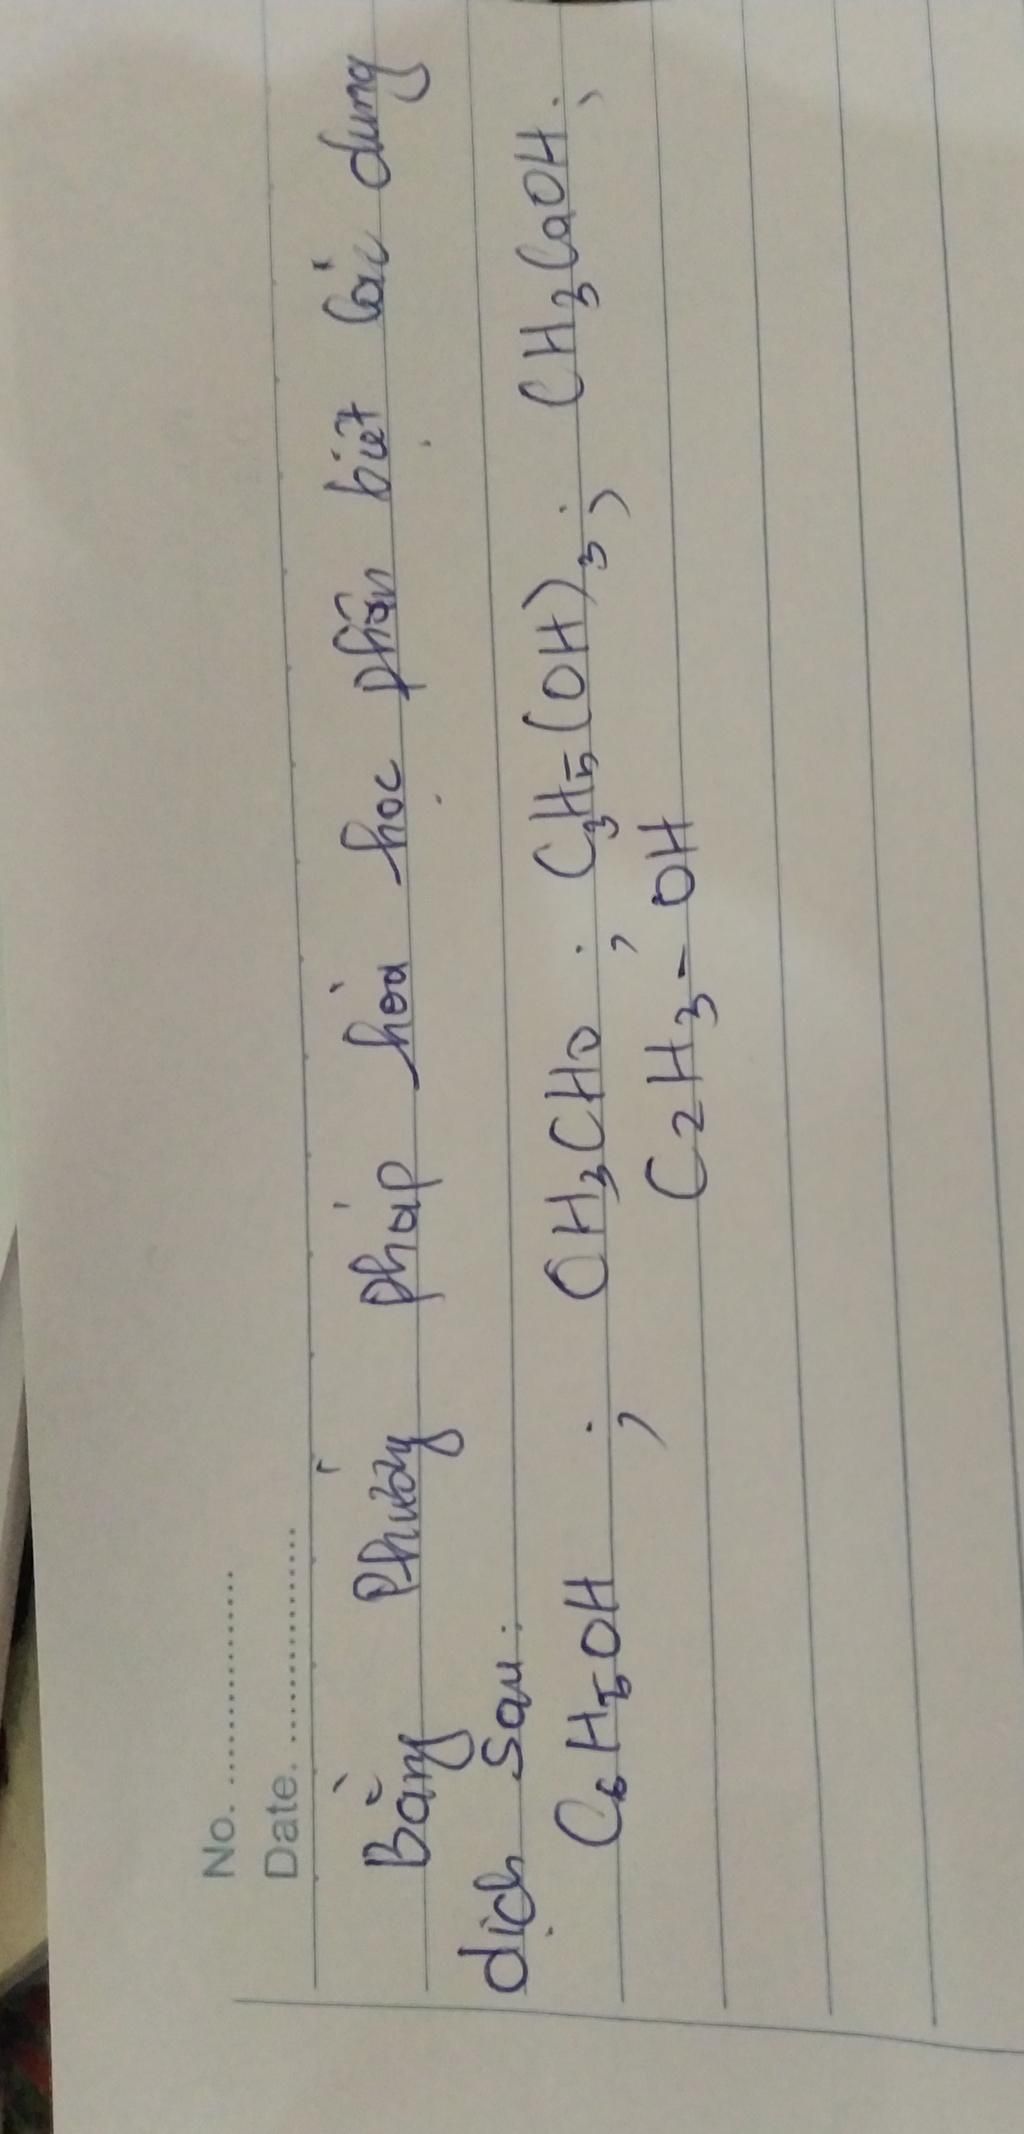 No. ....................
Date. ....................
Bằng Phương pháp hóa học phân biệt các dung
dịch sau:
C₆H₅OH ; OH₃CHO ; C₃H₅(OH)₃ ; CH₃COOH ;
C₂H₃-OH